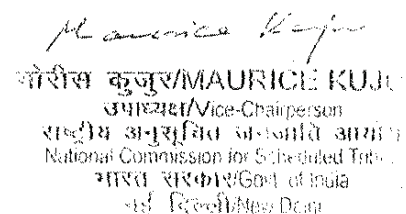 Maurice Kujur
मोरीस कुजुर/MAURICE KUJU
उपाध्यक्ष/Vice-Chairperson
राष्ट्रीय अनुसूचित जनजाति आयोग
National Commission for Scheduled Trib
भारत सरकार/Govt. of India
नई दिल्ली/New Delhi